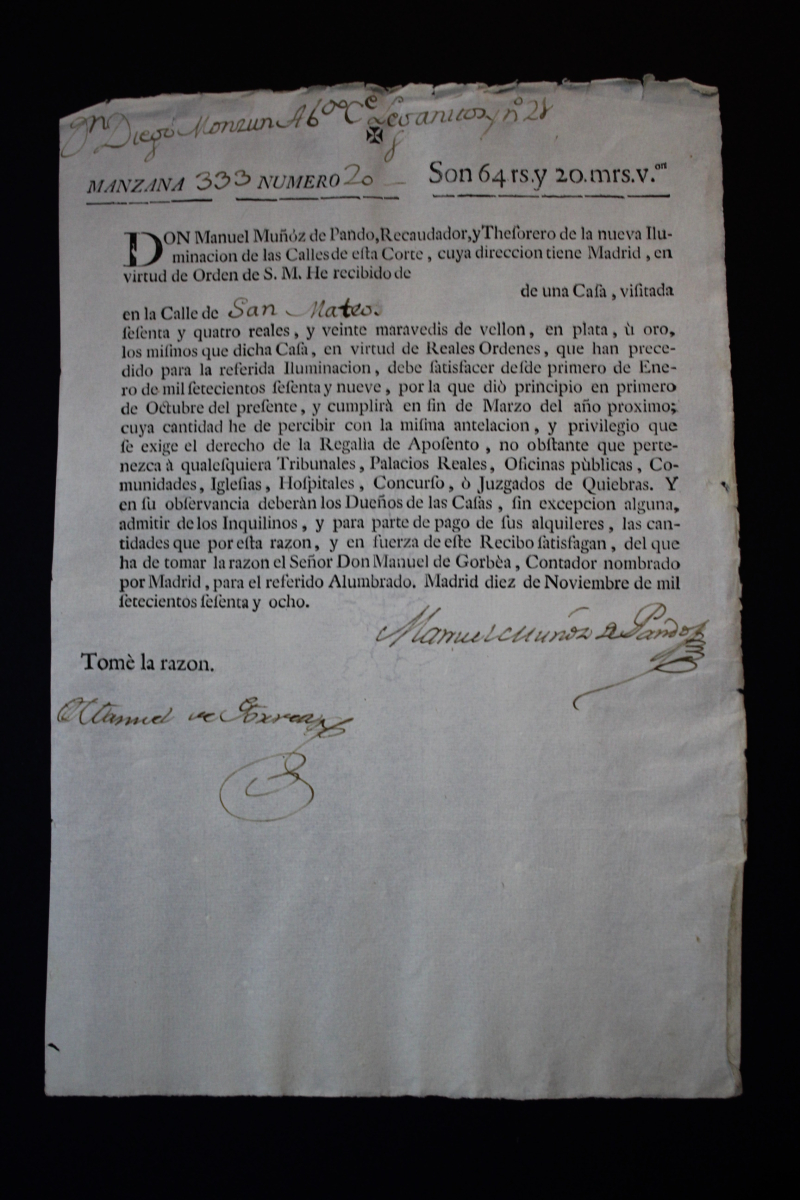 Dn Diego Monzun Abdo Ce Leganitos nº 28
MANZANA 333 NUMERO 20 Son 64 rs. y 20. mrs. v.on
DON Manuel Muñóz de Pando, Recaudador, y Theſorero de la nueva Ilu-
minacion de las Calles de eſta Corte, cuya direccion tiene Madrid, en
virtud de Orden de S. M. He recibido de
de una Caſa, viſitada
en la Calle de San Mateo.
ſeſenta y quatro reales, y veinte maravedis de vellon, en plata, ù oro,
los miſmos que dicha Caſa, en virtud de Reales Ordenes, que han prece-
dido para la referida Iluminacion, debe ſatisfacer deſde primero de Ene-
ro de mil ſetecientos ſeſenta y nueve, por la que diò principio en primero
de Octubre del preſente, y cumplirà en fin de Marzo del año proximo;
cuya cantidad he de percibir con la miſma antelacion, y privilegio que
ſe exige el derecho de la Regalìa de Apoſento, no obſtante que perte-
nezca à qualeſquiera Tribunales, Palacios Reales, Oficinas pùblicas, Co-
munidades, Igleſias, Hoſpitales, Concurſo, ò Juzgados de Quiebras. Y
en ſu obſervancia deberàn los Dueños de las Caſas, ſin excepcion alguna,
admitir de los Inquilinos, y para parte de pago de ſus alquileres, las can-
tidades que por eſta razon, y en fuerza de eſte Recibo ſatisfagan, del que
ha de tomar la razon el Señor Don Manuel de Gorbèa, Contador nombrado
por Madrid, para el referido Alumbrado. Madrid diez de Noviembre de mil
ſetecientos ſeſenta y ocho.
Manuel Muñoz de Pando
Tomè la razon.
Manuel de Gorvea